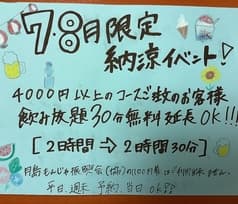 7・8月限定
納涼イベント!
4000円以上のコースご注文のお客様
飲み放題30分無料延長OK!!!
[2時間 ⇒ 2時間30分]
月島もんじゃ振興会(補)の1100円券はご利用出来ません。
平日、週末、予約、当日OK!!